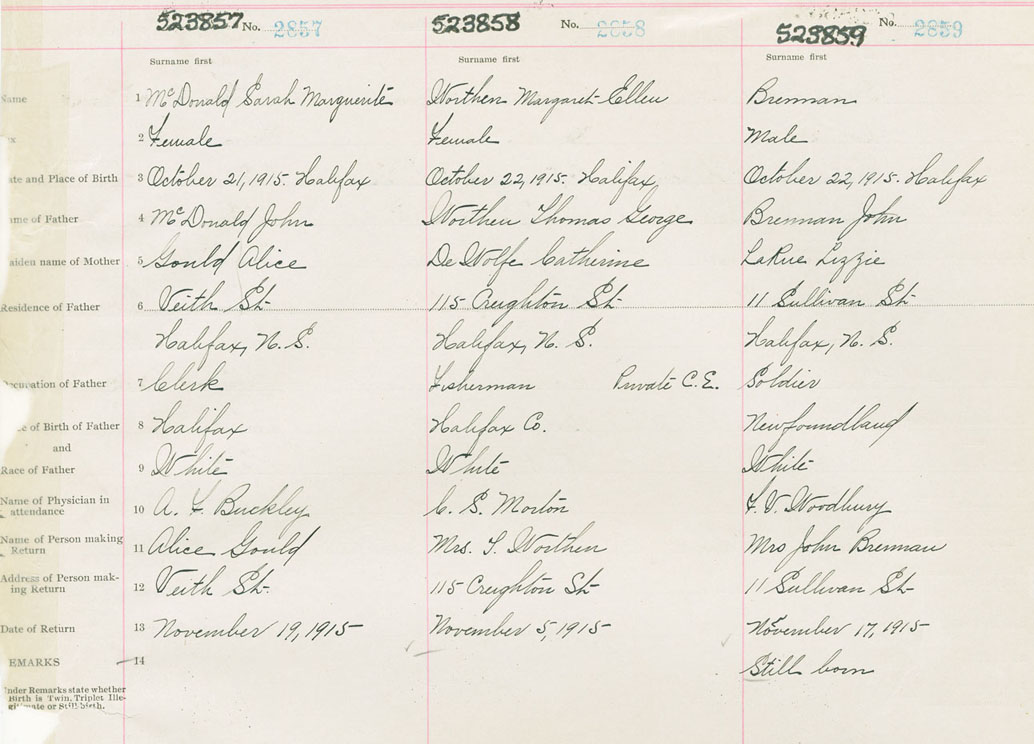 523857 No. 2857 523858 No. 2858 523859 No. 2859
Surname first Surname first Surname first
Name 1 McDonald Sarah Marguerite Worthen Margaret Ellen Brennan
2 Female Female Male
Date and Place of Birth 3 October 21, 1915. Halifax October 22, 1915. Halifax, October 22, 1915. Halifax
Name of Father 4 McDonald John Worthen Thomas George Brennan John
Maiden name of Mother 5 Gould Alice De Wolfe Catherine LaRue Lizzie
Residence of Father 6 Veith St. 115 Creighton St. 11 Sullivan St.
Halifax, N. S. Halifax, N. S. Halifax, N. S.
Occupation of Father 7 Clerk Fisherman Private C.E. Soldier
of Birth of Father 8 Halifax Halifax Co. Newfoundland
and
Race of Father 9 White White White
Name of Physician in
attendance 10 A. F. Buckley C. S. Morton F. V. Woodbury
Name of Person making
Return 11 Alice Gould Mrs. T. Worthen Mrs John Brennan
Address of Person mak-
ing Return 12 Veith St. 115 Creighton St 11 Sullivan St
Date of Return 13 November 19, 1915 November 5, 1915 November 17, 1915
REMARKS 14 Still born
Under Remarks state whether
Birth is Twin, Triplet Ille-
gitimate or Stillbirth.